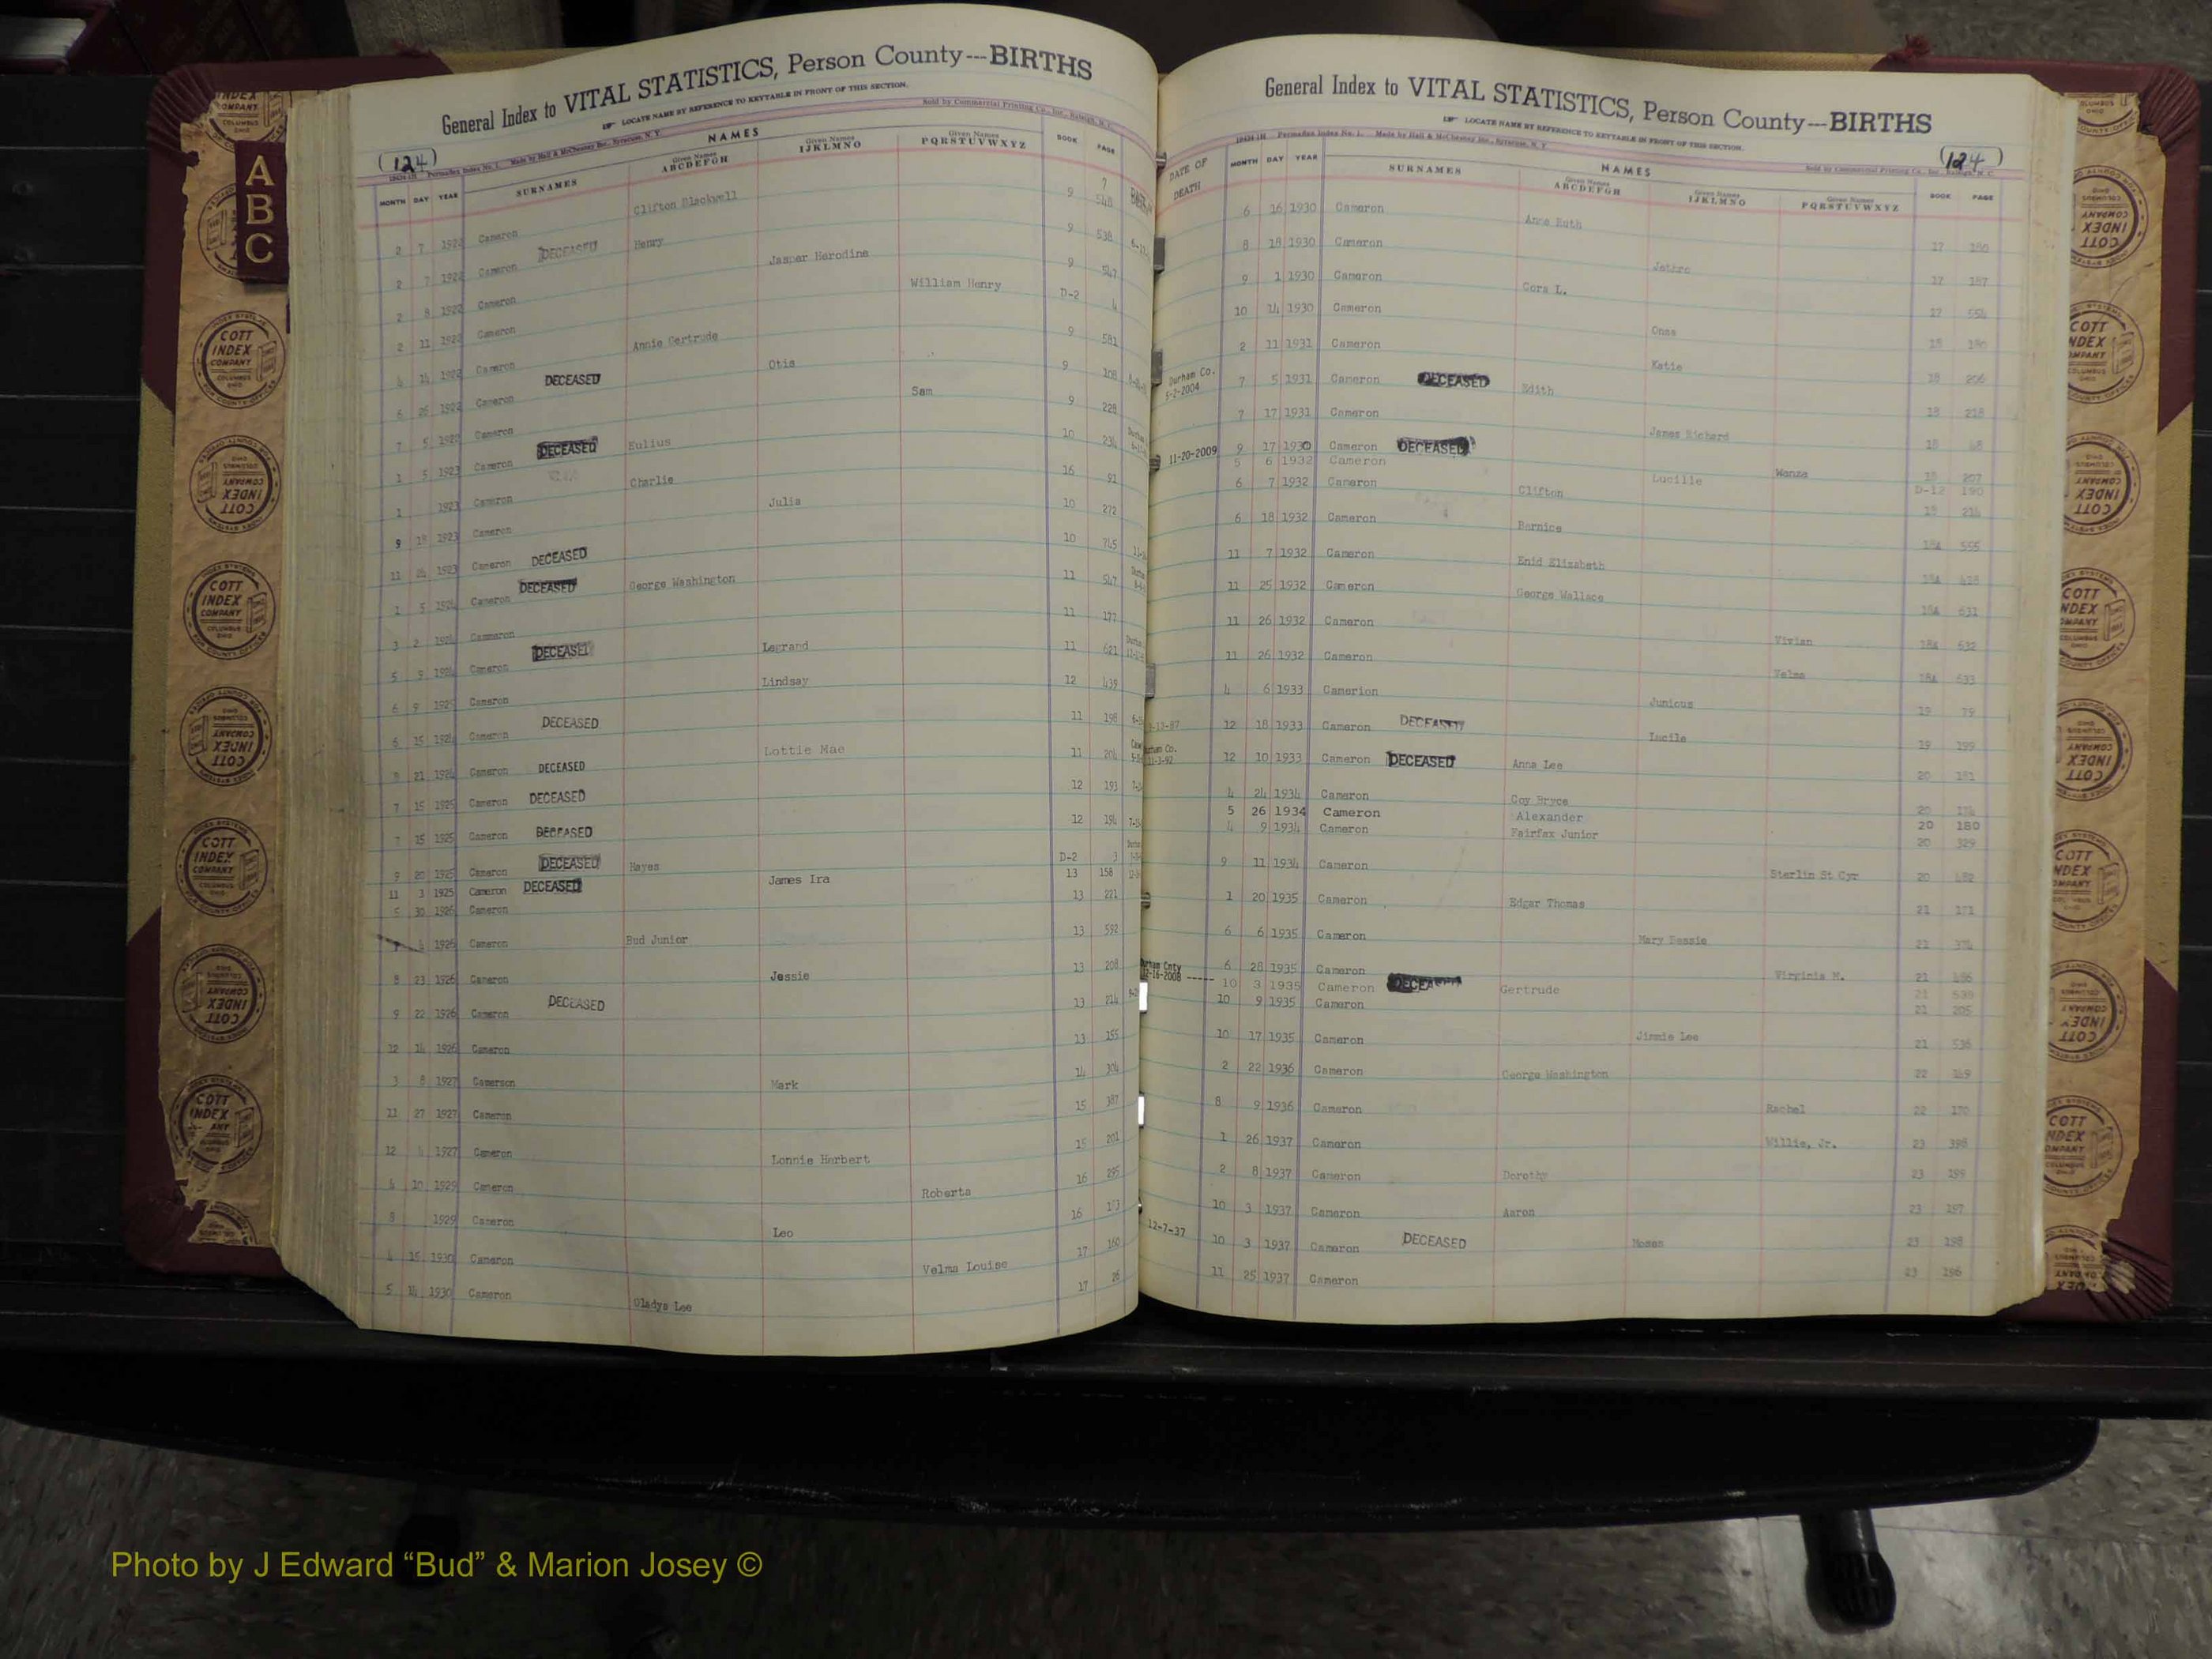 General Index to VITAL STATISTICS, Person County---BIRTHS
LOCATE NAME BY REFERENCE TO KEYTABLE IN FRONT OF THIS SECTION.
Sold by Commercial Printing Co., Inc., Raleigh, N. C.
(124)
Made by Hall & McChesney Inc., Syracuse, N. Y.
NAMES
MONTH DAY YEAR SURNAMES Given Names ABCDEFGH Given Names IJKLMNO Given Names PQRSTUVWXYZ BOOK PAGE
Clifton Blackwell
2 7 1922 Cameron DECEASED Henry 9 538
2 7 1922 Cameron Jasper Herodine 9 547
2 8 1922 Cameron William Henry D-2 4
2 11 1922 Cameron Annie Gertrude 9 581
4 14 1922 Cameron DECEASED Otis 9 108
6 26 1922 Cameron Sam 9 228
7 5 1922 Cameron DECEASED Eulius 10 234
1 5 1923 Cameron Charlie 16 91
1 1923 Cameron Julia 10 272
9 19 1923 Cameron 10 745
11 24 1923 Cameron DECEASED
DECEASED George Washington 11 547
1 5 1924 Cameron 11 177
3 2 1924 Cammeron DECEASED Legrand 11 621
5 9 1924 Cameron Lindsay 12 439
6 9 1925 Cameron DECEASED 11 198
6 15 1924 Cameron Lottie Mae 11 204
8 21 1924 Cameron DECEASED 12 193
7 15 1925 Cameron DECEASED 12 194
7 15 1925 Cameron DECEASED
9 20 1925 Cameron DECEASED Hayes D-2 3
11 3 1925 Cameron DECEASED James Ira 13 158
5 30 1926 Cameron 13 221
4 1926 Cameron Bud Junior 13 592
8 23 1926 Cameron Jessie 13 208
9 22 1926 Cameron DECEASED 13 214
12 14 1926 Cameron 13 155
3 8 1927 Camerson Mark 14 304
11 27 1927 Cameron 15 387
12 4 1927 Cameron Lonnie Herbert 15 201
4 10 1929 Cameron Roberta 16 295
8 1929 Cameron Leo 16 153
4 15 1930 Cameron Velma Louise 17 160
5 14 1930 Cameron Gladys Lee 17 26
General Index to VITAL STATISTICS, Person County---BIRTHS
LOCATE NAME BY REFERENCE TO KEYTABLE IN FRONT OF THIS SECTION.
(124)
Made by Hall & McChesney Inc., Syracuse, N. Y.
NAMES
DATE OF DEATH MONTH DAY YEAR SURNAMES Given Names ABCDEFGH Given Names IJKLMNO Given Names PQRSTUVWXYZ BOOK PAGE
6 16 1930 Cameron Anna Ruth 17 180
8 18 1930 Cameron Jethro 17 187
9 1 1930 Cameron Cora L. 17 554
10 14 1930 Cameron Onna 18 180
2 11 1931 Cameron Katie 18 206
Durham Co. 5-2-2004 7 5 1931 Cameron DECEASED Edith 18 218
7 17 1931 Cameron James Richard 18 48
11-20-2009 9 17 1930 Cameron DECEASED Wanza 18 207
5 6 1932 Cameron Lucille D-12 190
6 7 1932 Cameron Clifton 18 214
6 18 1932 Cameron Bernice 18A 555
11 7 1932 Cameron Enid Elizabeth 18A 428
11 25 1932 Cameron George Wallace 18A 631
11 26 1932 Cameron Vivian 18A 632
11 26 1932 Cameron Velma 18A 633
4 6 1933 Camerion Junious 19 79
12 18 1933 Cameron DECEASED Lucile 19 199
Durham Co. 11-3-92 12 10 1933 Cameron DECEASED Anna Lee 20 181
4 24 1934 Cameron Coy Bryce 20
5 26 1934 Cameron Alexander 20 180
4 9 1934 Cameron Fairfax Junior 20 329
9 11 1934 Cameron Sterlin St Cyr 20 482
1 20 1935 Cameron Edgar Thomas 21 171
6 6 1935 Cameron Mary Bessie 21 374
Durham Cnty 12-16-2008 ------ 6 28 1935 Cameron Virginia M. 21 486
10 3 1935 Cameron DECEASED Gertrude 21 539
10 9 1935 Cameron 21 205
10 17 1935 Cameron Jimmie Lee 21 536
2 22 1936 Cameron George Washington 22 169
8 9 1936 Cameron Rachel 22 170
1 26 1937 Cameron Willie, Jr. 23 398
2 8 1937 Cameron Dorothy 23 199
10 3 1937 Cameron Aaron 23 197
12-7-37 10 3 1937 Cameron DECEASED Moses 23 198
11 25 1937 Cameron 23 196
A
B
C
COTT INDEX COMPANY COLUMBUS OHIO
Photo by J Edward “Bud” & Marion Josey ©